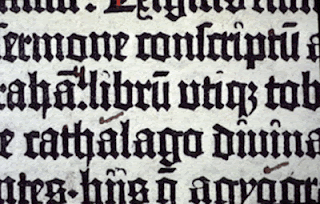 Exigitis
sermone conscriptū a
rahā. librū utiqꝫ tob
e cathalago diuina
ntes. hiis q̄ agyogr